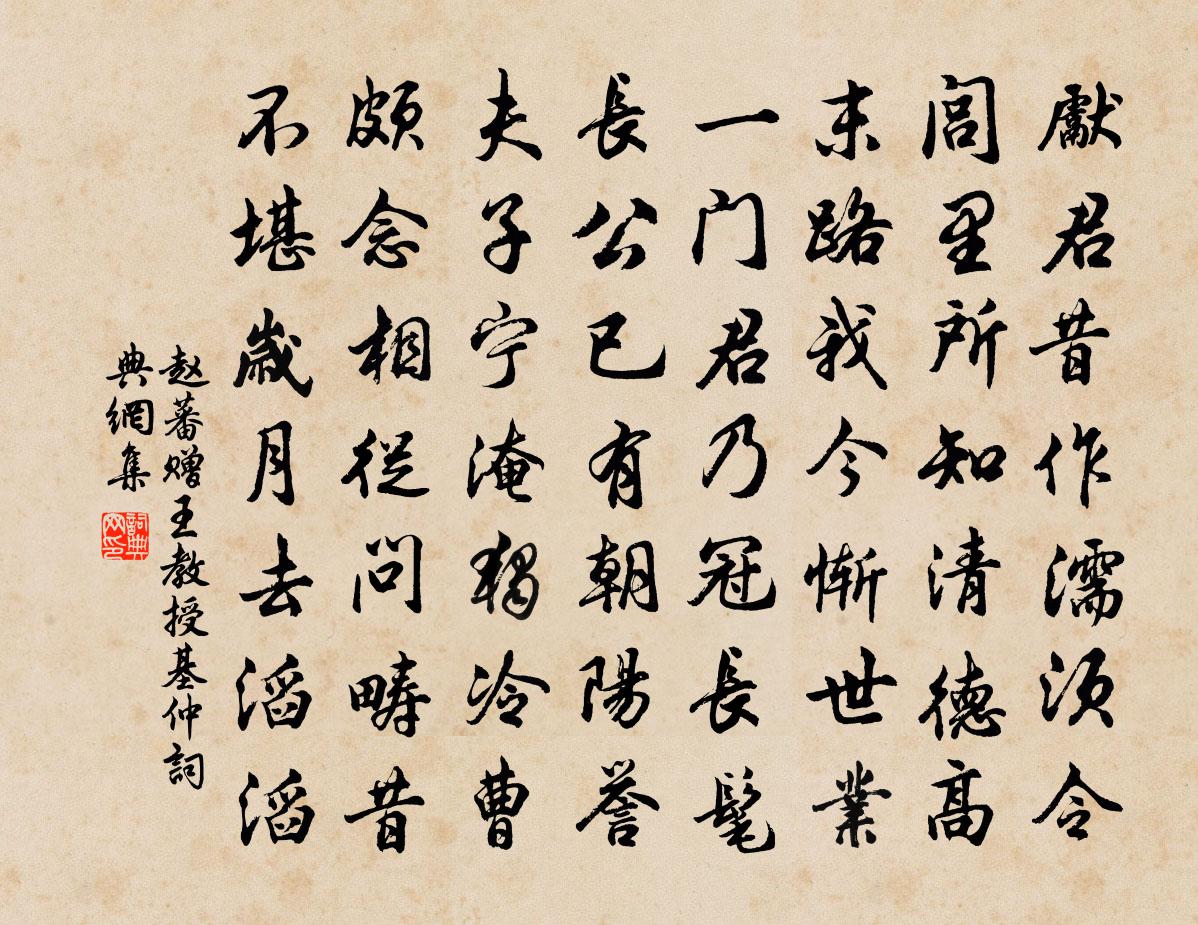 獻君昔作濡須令
閭里所知清德高
末路我今慚世業
一门君乃冠長髦
長公已有朝陽譽
夫子宁淹獨冷曹
頗念相從问疇昔
不堪歲月去滔滔
赵蕃赠王教授基仲詞
典網集
詞典
网印